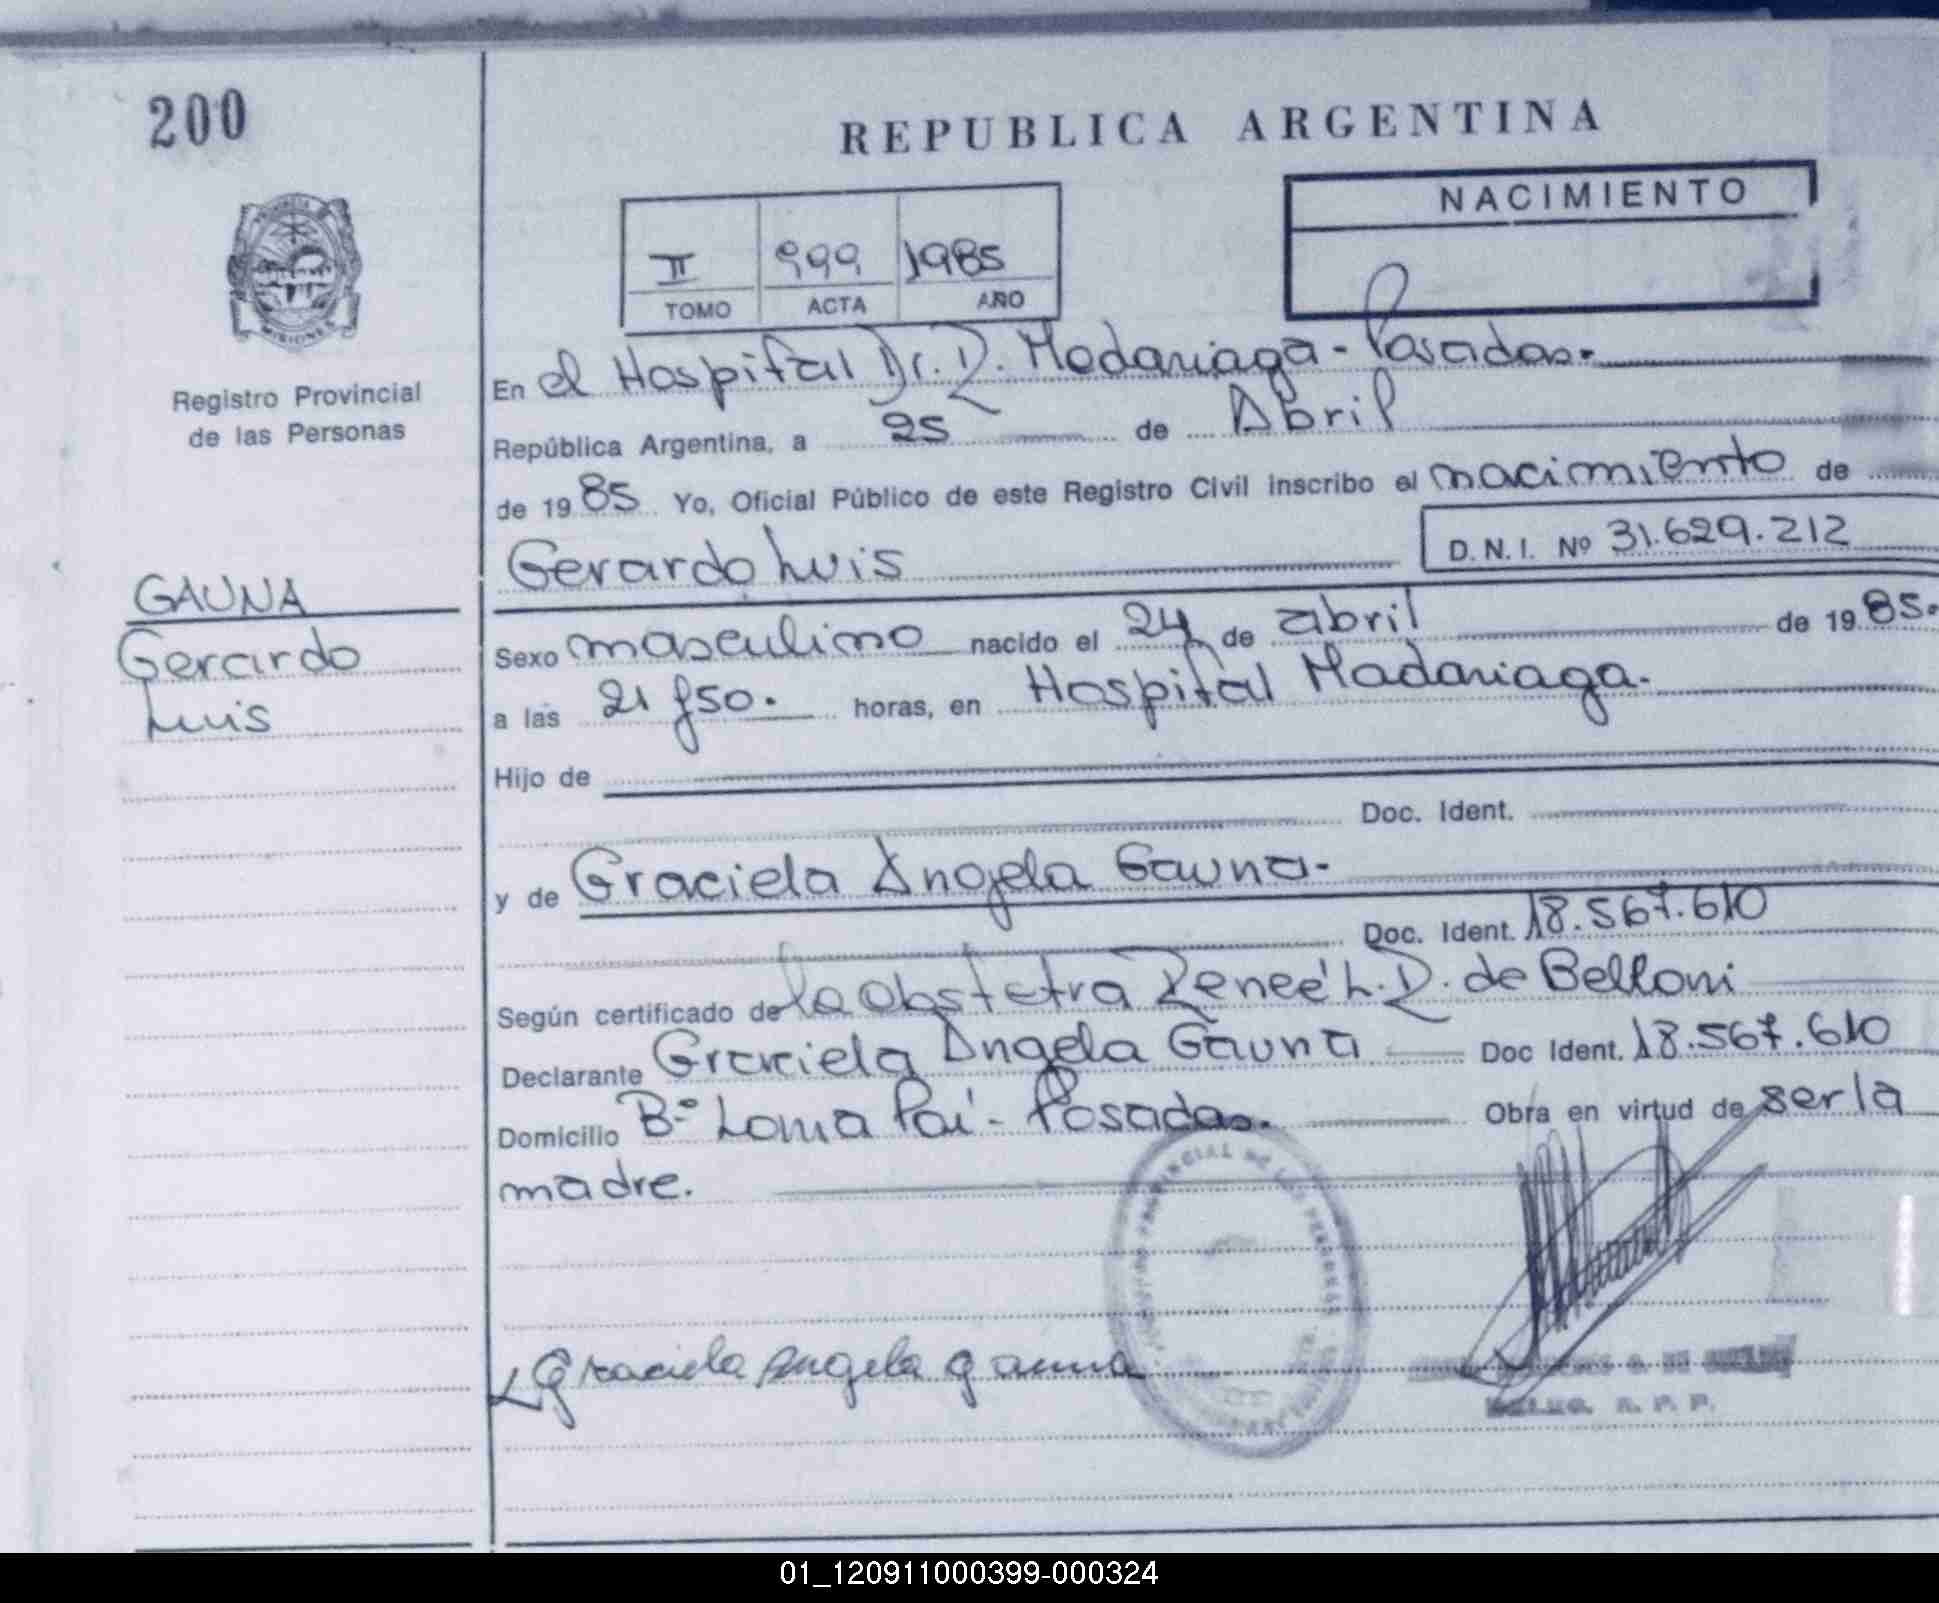 200
REPUBLICA ARGENTINA
NACIMIENTO
II 999 1985
TOMO ACTA AÑO
MISIONES
Registro Provincial
de las Personas
En el Hospital Dr. R. Madariaga - Posadas.
República Argentina, a 25 de Abril
de 1985 Yo, Oficial Público de este Registro Civil inscribo el nacimiento de
Gerardo Luis D. N. I. Nº 31.629.212
GAUNA
Gerardo
Luis
Sexo masculino nacido el 24 de abril de 1985.
a las 21 y 50. horas, en Hospital Madariaga.
Hijo de
Doc. Ident.
y de Graciela Angela Gauna.
Doc. Ident. 18.567.610
Según certificado de la obstetra Reneé L. R. de Belloni
Declarante Graciela Angela Gauna Doc Ident. 18.567.610
Domicilio Bº Loma Paí - Posadas. Obra en virtud de ser la
madre.
Graciela Angela Gauna
PROVINCIAL DE LAS PERSONAS
R. P. P.
01_120911000399-000324